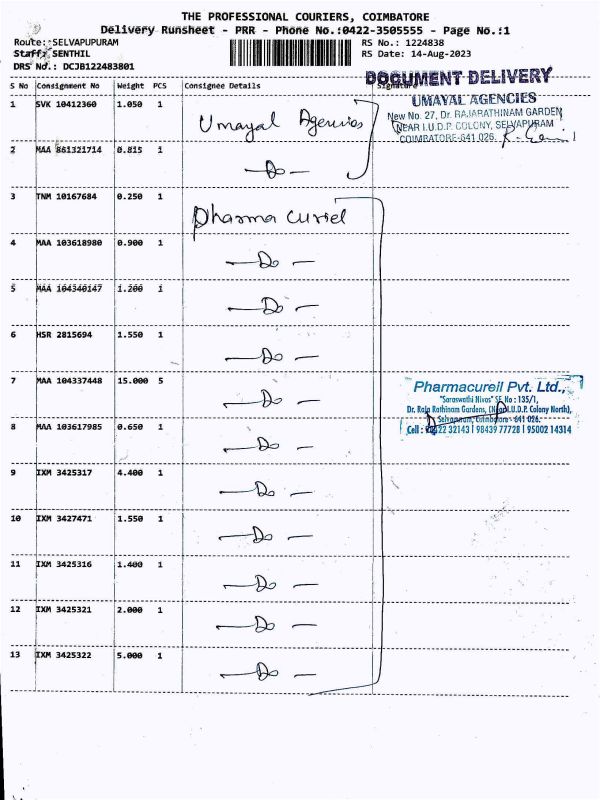 THE PROFESSIONAL COURIERS, COIMBATORE
Delivery Runsheet - PRR - Phone No.:0422-3505555 - Page No.:1
Route:-SELVAPUPURAM RS No.: 1224838
Staff: SENTHIL RS Date: 14-Aug-2023
DRS No.: DCJB122483801
DOCUMENT DELIVERY
S No Consignment No Weight PCS Consignee Details Signature
1 SVK 10412360 1.050 1 Umayal Agencies
UMAYAL AGENCIES
New No. 27, Dr. RAJARATHINAM GARDEN
NEAR I.U.D.P. COLONY, SELVAPURAM
COIMBATORE-641 026.
2 MAA 861321714 0.815 1 —Do—
3 TNM 10167684 0.250 1 Pharma Curiel
4 MAA 103618980 0.900 1 —Do—
5 MAA 104340147 1.200 1 —Do—
6 HSR 2815694 1.550 1 —Do—
7 MAA 104337448 15.000 5 —Do—
Pharmacureil Pvt. Ltd.,
"Saraswathi Nivas" SF. No : 135/1,
Dr. Raja Rathinam Gardens, (Near I.U.D.P. Colony North),
Selvapuram, Coimbatore - 641 026.
Cell : 98422 32143 | 98439 77728 | 95002 14314
8 MAA 103617985 0.650 1 —Do—
9 IXM 3425317 4.400 1 —Do—
10 IXM 3427471 1.550 1 —Do—
11 IXM 3425316 1.400 1 —Do—
12 IXM 3425321 2.000 1 —Do—
13 IXM 3425322 5.000 1 —Do—